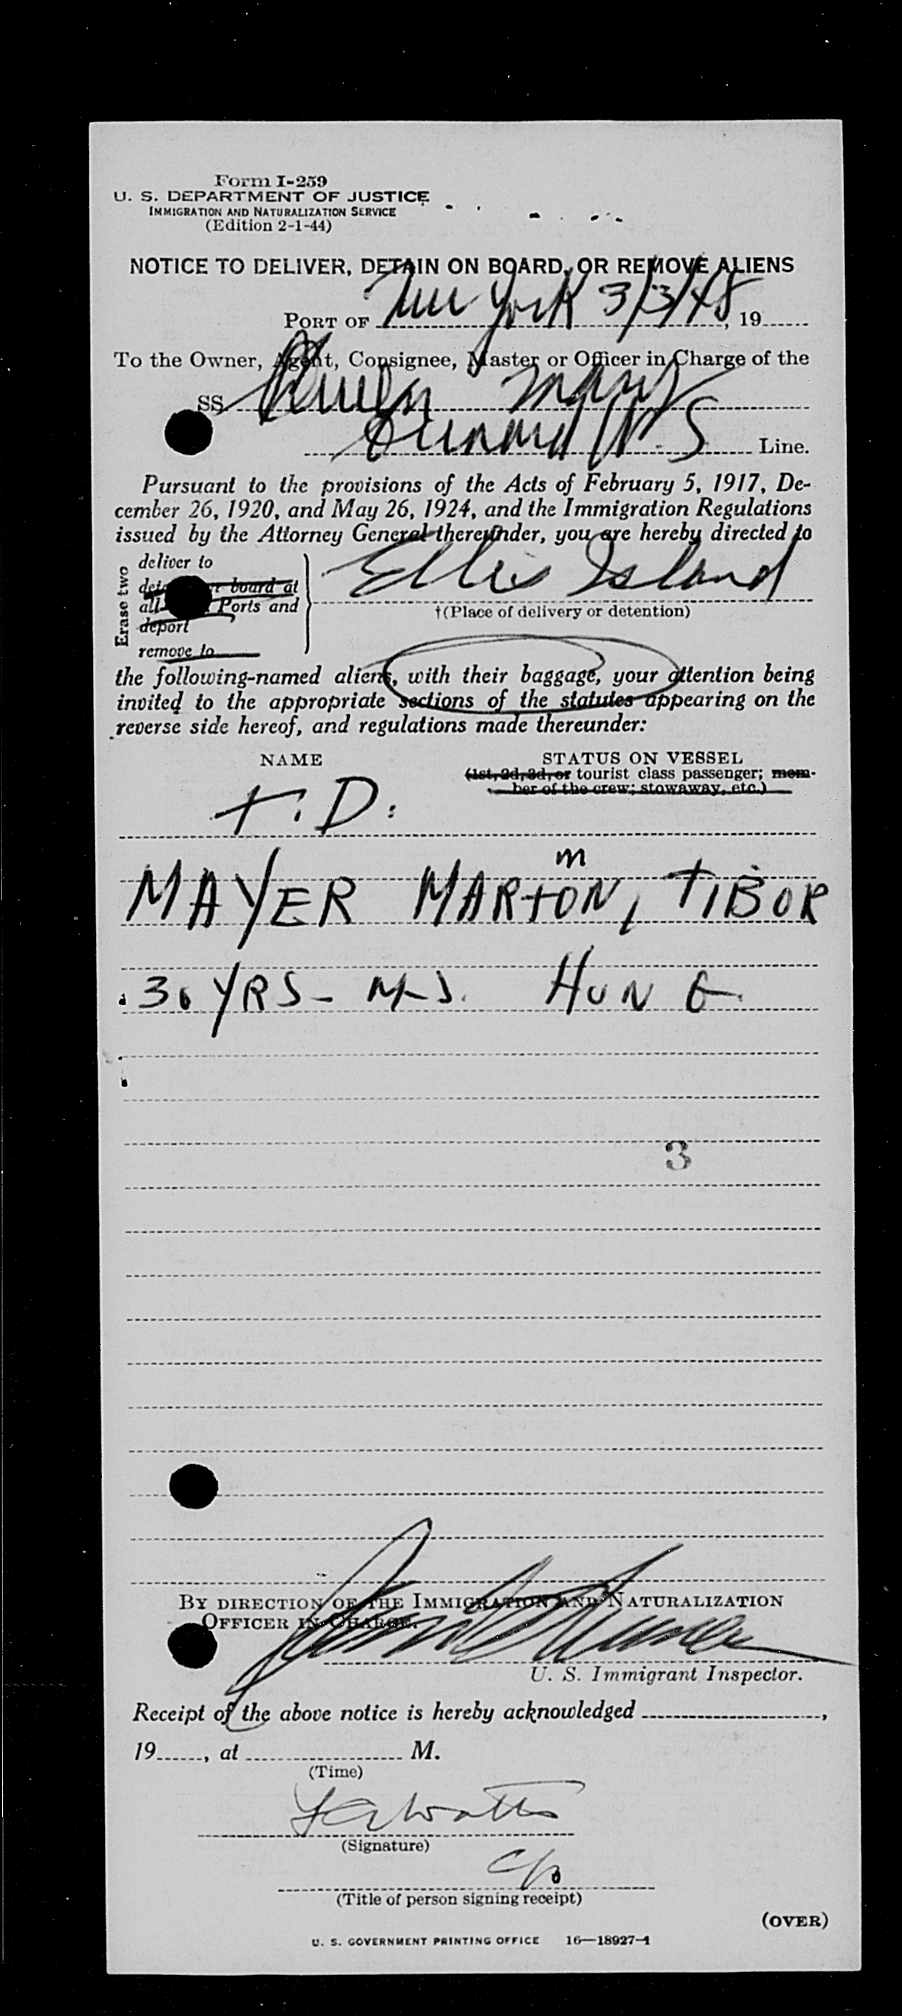 Form I-259
U. S. DEPARTMENT OF JUSTICE
IMMIGRATION AND NATURALIZATION SERVICE
(Edition 2-1-44)
NOTICE TO DELIVER, DETAIN ON BOARD, OR REMOVE ALIENS
PORT OF New York 3/3/48, 19
To the Owner, Agent, Consignee, Master or Officer in Charge of the
SS Queen Mary
Cunard W. S Line.
Pursuant to the provisions of the Acts of February 5, 1917, De-
cember 26, 1920, and May 26, 1924, and the Immigration Regulations
issued by the Attorney General thereunder, you are hereby directed to
Erase two
deliver to
board at
all Ports and
deport
remove to
Ellis Island
†(Place of delivery or detention)
the following-named aliens, with their baggage, your attention being
invited to the appropriate sections of the statutes appearing on the
reverse side hereof, and regulations made thereunder:
NAME STATUS ON VESSEL
(1st, 2d, 3d, or tourist class passenger; mem-
ber of the crew; stowaway, etc.)
T. D.
m
MAYER MARTON, TIBOR
30 YRS - M-S. HUNG.
3
BY DIRECTION OF THE IMMIGRATION AND NATURALIZATION
OFFICER IN CHARGE.
U. S. Immigrant Inspector.
Receipt of the above notice is hereby acknowledged ,
19 , at M.
(Time)
Watts
(Signature)
(Title of person signing receipt)
(OVER)
U. S. GOVERNMENT PRINTING OFFICE 16—18927-1